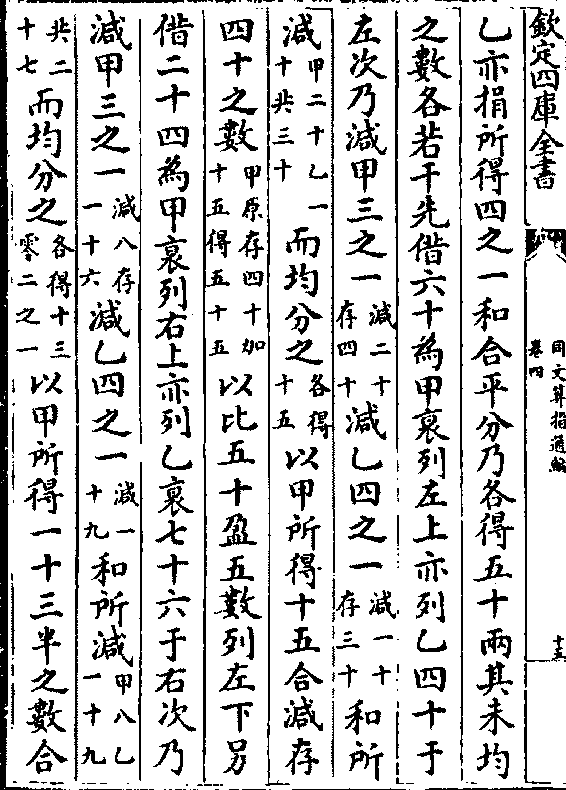 欽定四庫全書
同文算指通編
卷四
乙亦捐所得四之一和合平分乃各得五十兩其未均
之數各若干先借六十為甲衰列左上亦列乙四十于
左次乃減甲三之一減二十存四十減乙四之一減一十存三十和所
減甲二十乙一十共三十而均分之各得十五以甲所得十五合減存
四十之數甲原存四十加十五得五十五以比五十盈五數列左下另
借二十四為甲衰列右上亦列乙衰七十六于右次乃
減甲三之一減八存一十六減乙四之一減一十九和所減甲八乙一十九
共二十七而均分之各得十三零二之一以甲所得一十三半之數合